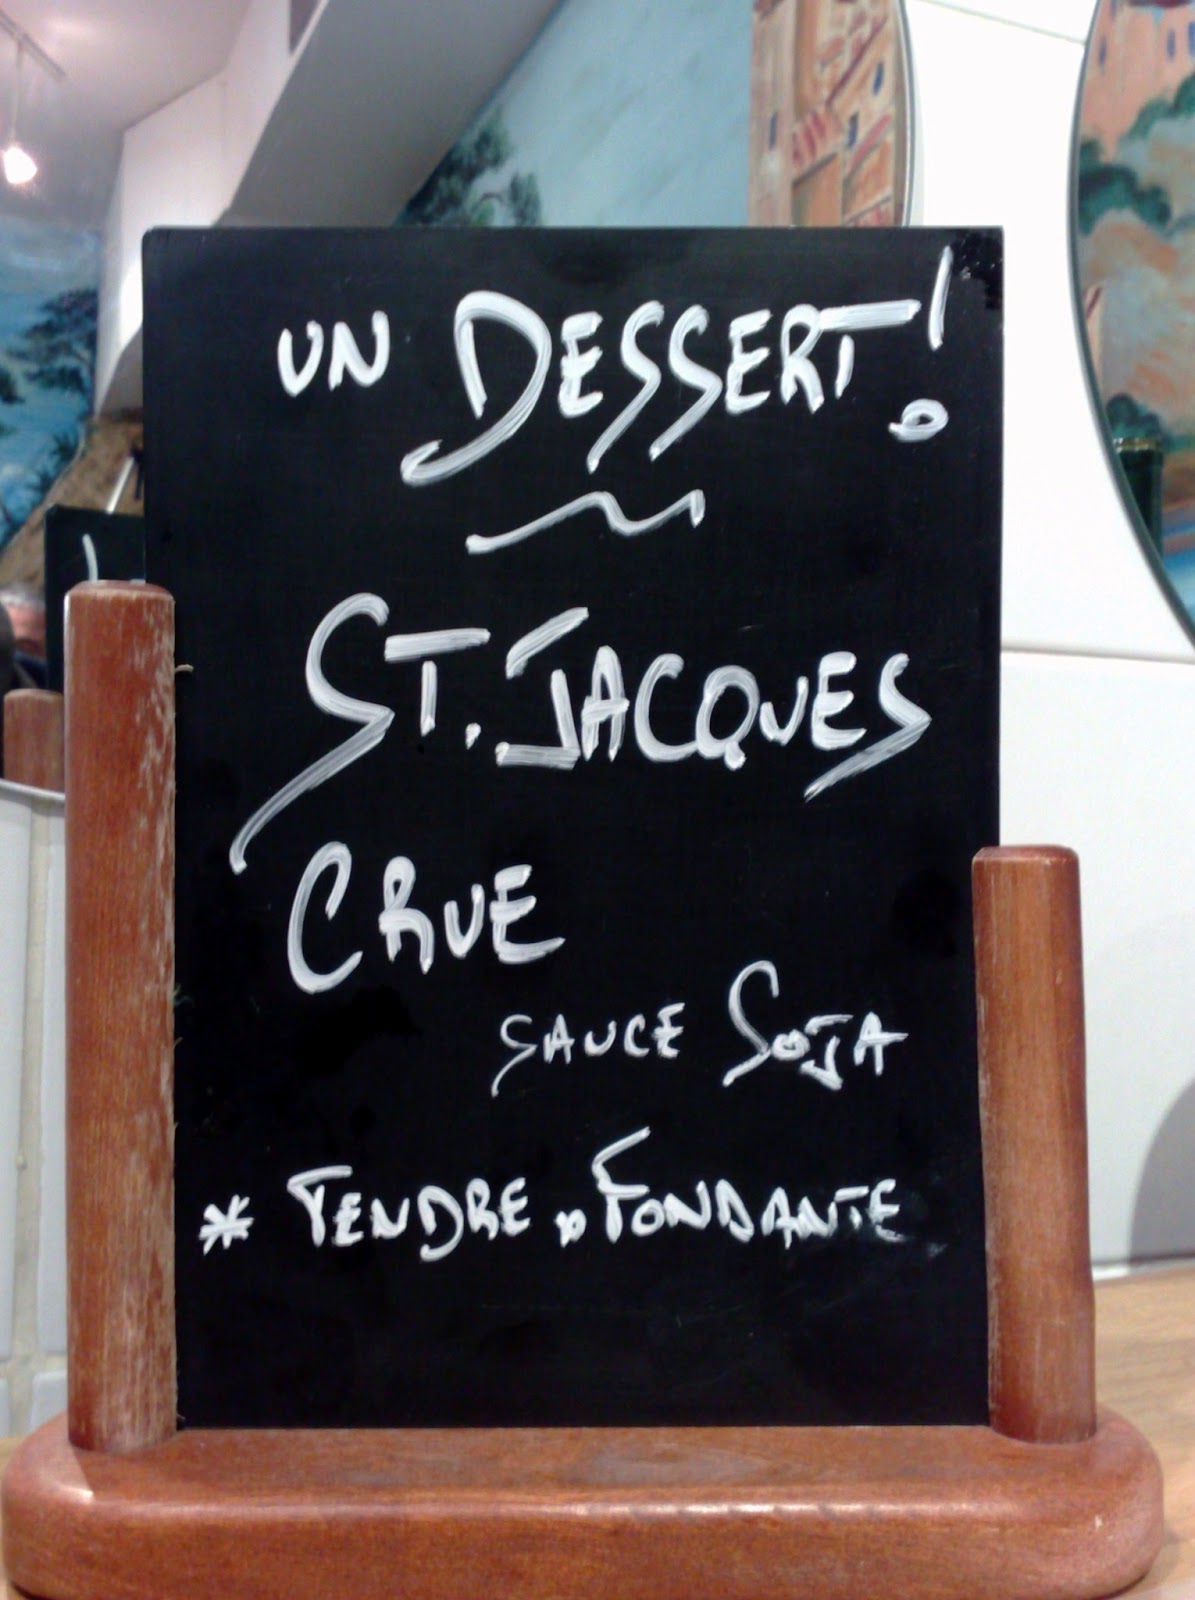 UN DESSERT!
ST. JACQUES
CRUE
SAUCE SOJA
* TENDRE & FONDANTE